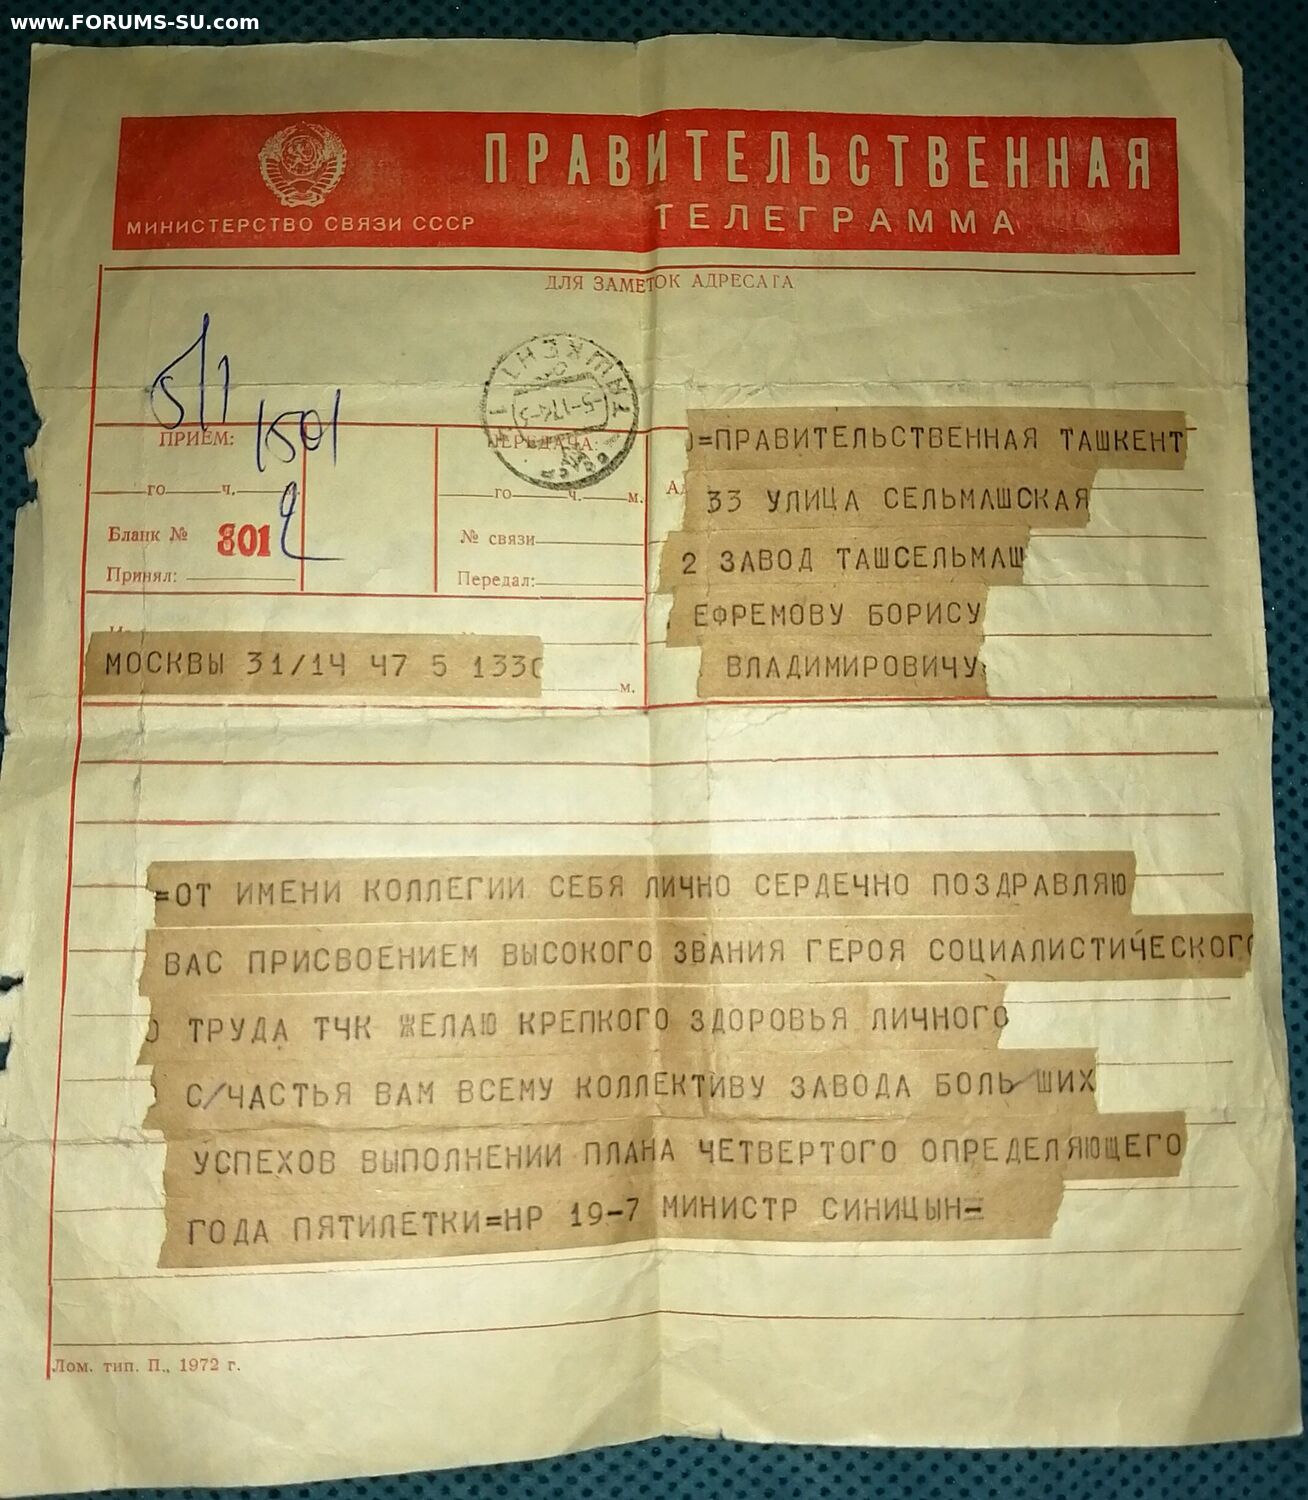 www.FORUMS-SU.com
ПРАВИТЕЛЬСТВЕННАЯ
МИНИСТЕРСТВО СВЯЗИ СССР
ТЕЛЕГРАММА
ДЛЯ ЗАМЕТОК АДРЕСАТА
5/1
1501
ТАШКЕНТ
ПРИЕМ:
ПЕРЕДАЧА:
=ПРАВИТЕЛЬСТВЕННАЯ ТАШКЕНТ
го ч.
го ч. м.
33 УЛИЦА СЕЛЬМАШСКАЯ
Бланк № 801
№ связи
2 ЗАВОД ТАШСЕЛЬМАШ
Принял:
Передал:
ЕФРЕМОВУ БОРИСУ
МОСКВЫ 31/14 47 5 1330
м.
ВЛАДИМИРОВИЧУ=
=ОТ ИМЕНИ КОЛЛЕГИИ СЕБЯ ЛИЧНО СЕРДЕЧНО ПОЗДРАВЛЯЮ
ВАС ПРИСВОЕНИЕМ ВЫСОКОГО ЗВАНИЯ ГЕРОЯ СОЦИАЛИСТИЧЕСКОГО
ТРУДА ТЧК ЖЕЛАЮ КРЕПКОГО ЗДОРОВЬЯ ЛИЧНОГО
С/ЧАСТЬЯ ВАМ ВСЕМУ КОЛЛЕКТИВУ ЗАВОДА БОЛЬ/ШИХ
УСПЕХОВ ВЫПОЛНЕНИИ ПЛАНА ЧЕТВЕРТОГО ОПРЕДЕЛЯЮЩЕГО
ГОДА ПЯТИЛЕТКИ=НР 19-7 МИНИСТР СИНИЦЫН=
Лом. тип. П., 1972 г.